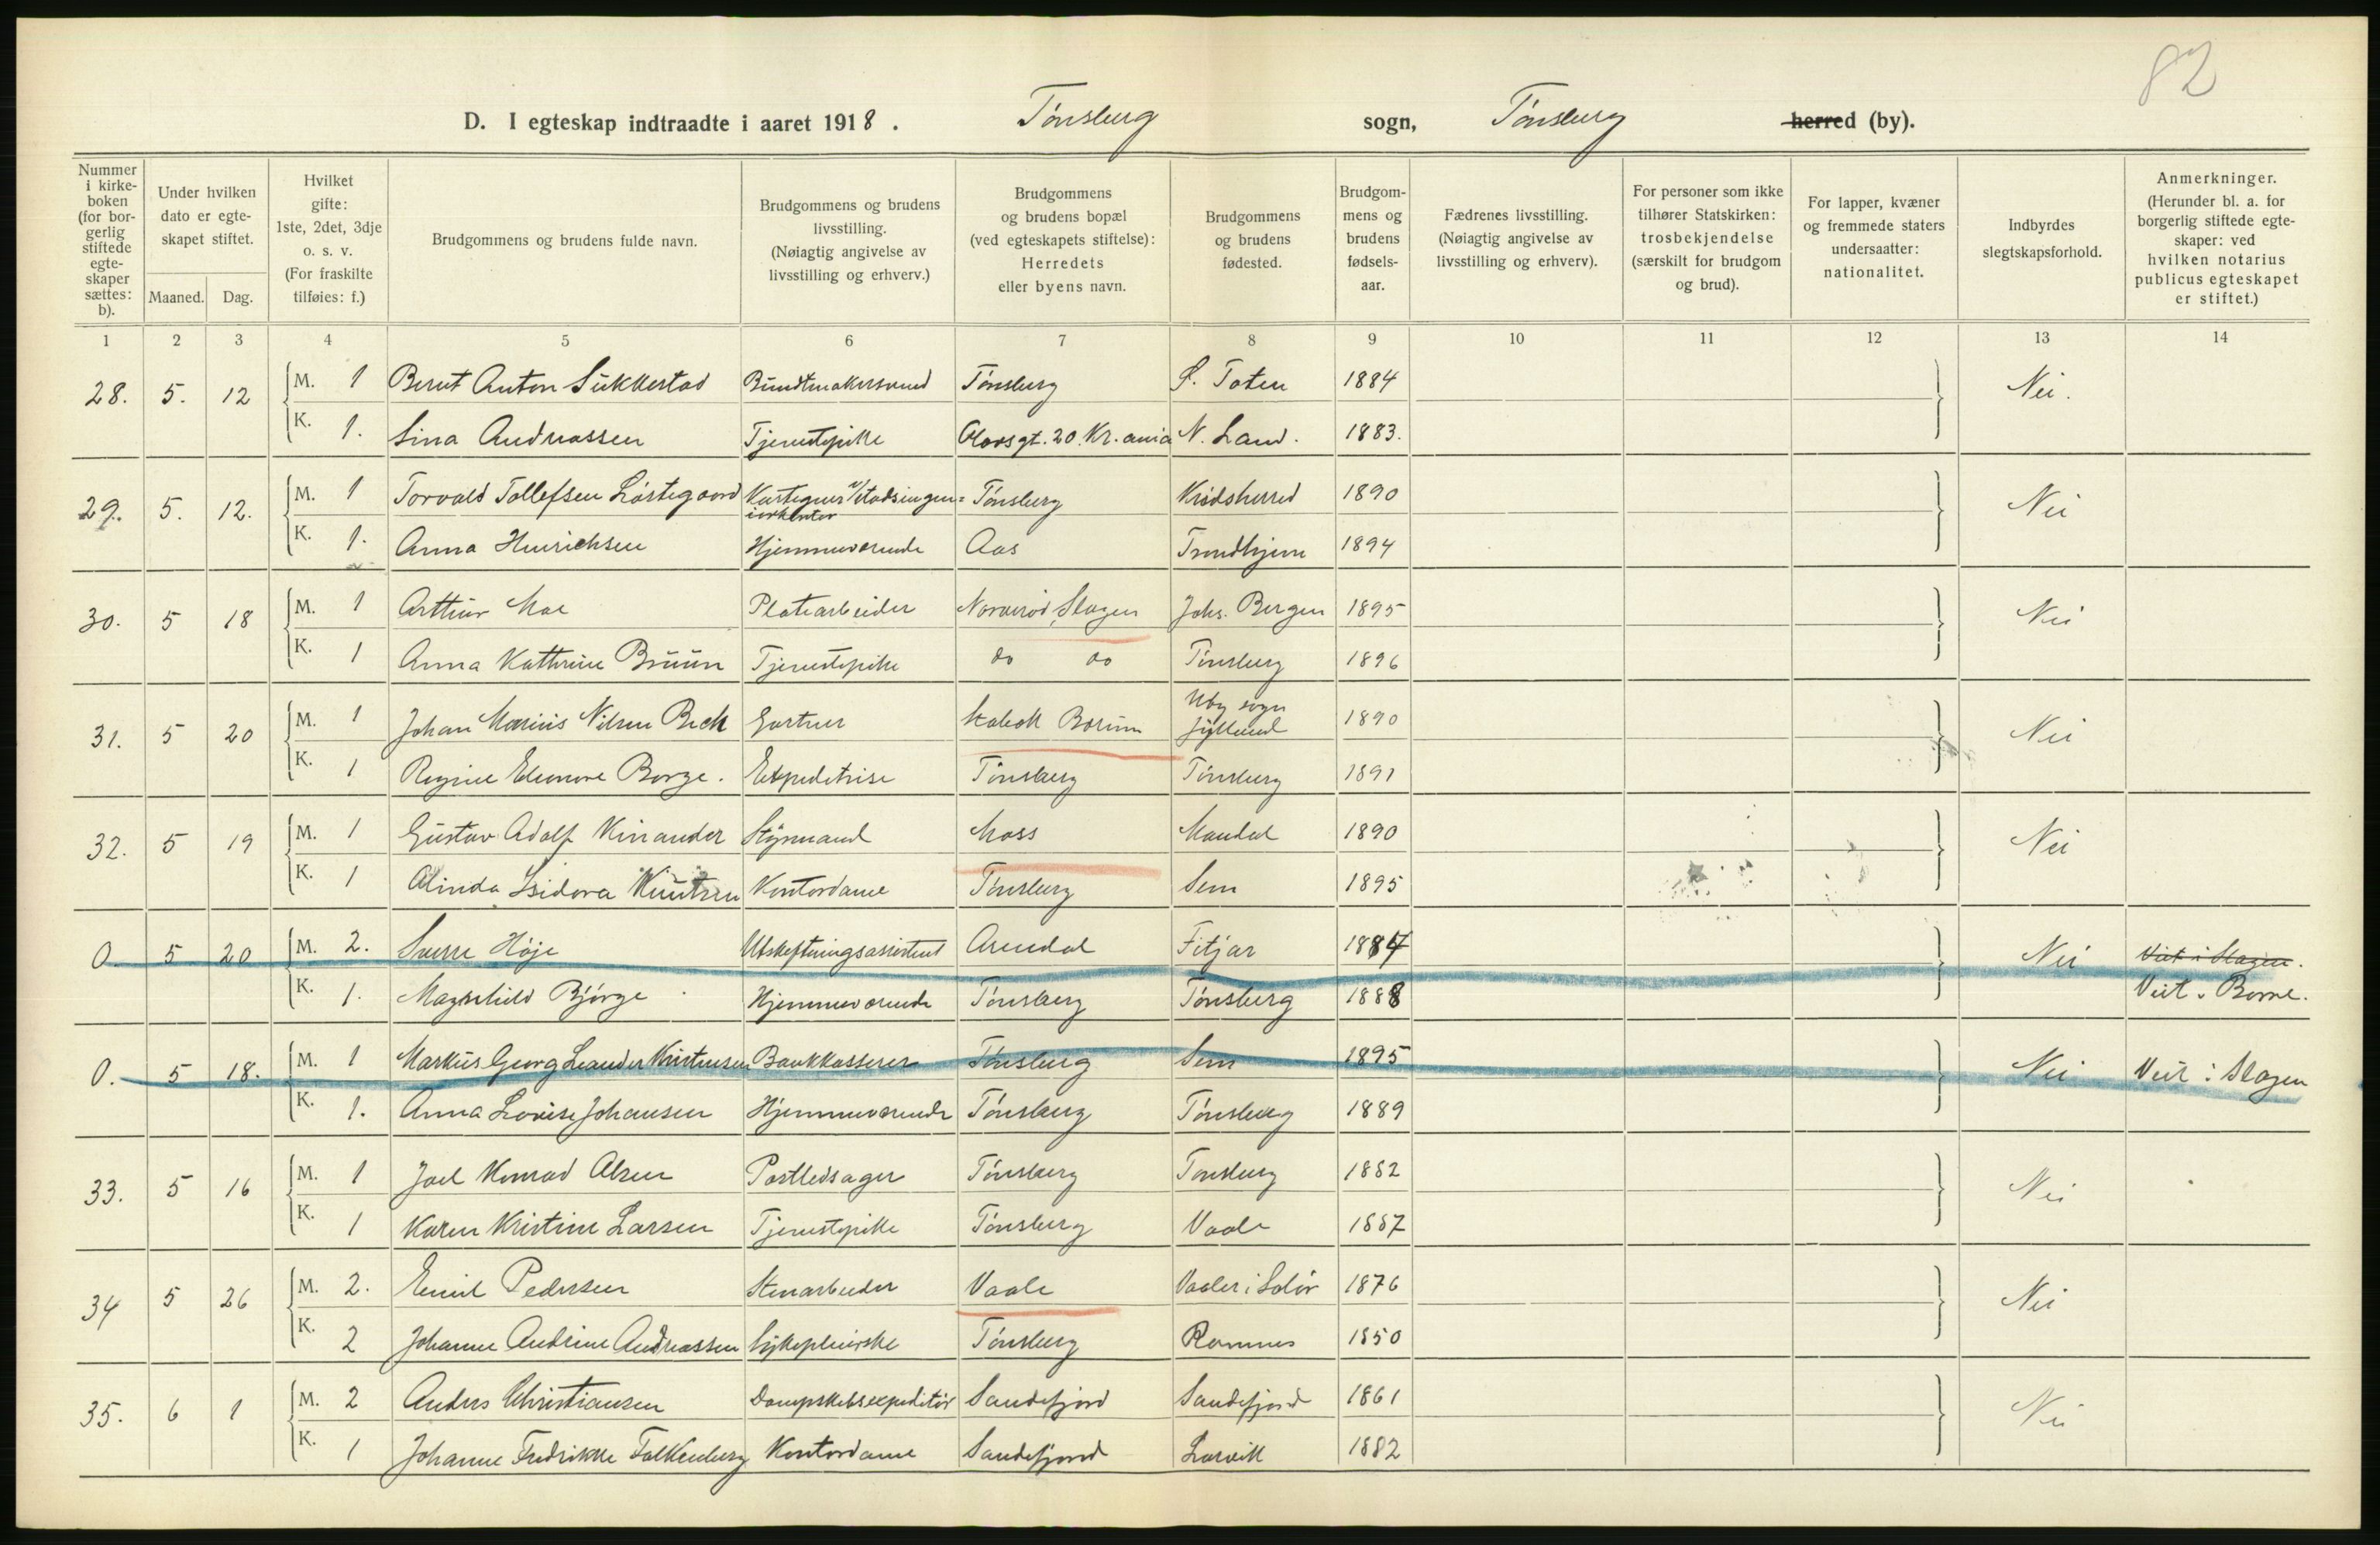 82
D. I egteskap indtraadte i aaret 1918. Tønsberg sogn, Tønsberg herred (by).
Nummer i kirke-boken (for bor-gerlig stiftede egte-skaper sættes: b).
Under hvilken dato er egte-skapet stiftet.
Maaned. Dag.
Hvilket gifte: 1ste, 2det, 3dje o. s. v. (For fraskilte tilføies: f.)
Brudgommens og brudens fulde navn.
Brudgommens og brudens livsstilling. (Nøiagtig angivelse av livsstilling og erhverv.)
Brudgommens og brudens bopæl (ved egteskapets stiftelse): Herredets eller byens navn.
Brudgommens og brudens fødested.
Brudgom-mens og brudens fødsels-aar.
Fædrenes livsstilling. (Nøiagtig angivelse av livsstilling og erhverv).
For personer som ikke tilhører Statskirken: trosbekjendelse (særskilt for brudgom og brud).
For lapper, kvæner og fremmede staters undersaatter: nationalitet.
Indbyrdes slegtskapsforhold.
Anmerkninger. (Herunder bl. a. for borgerlig stiftede egte-skaper: ved hvilken notarius publicus egteskapet er stiftet.)
1 2 3 4 5 6 7 8 9 10 11 12 13 14
28. 5. 12 M. 1 Bernt Anton Sukkestad Buntmakersvend Tønsberg Ø. Toten 1884 Nei.
K. 1. Lina Andreassen Tjenestepike Olavsgt. 20. Kr.ania N. Land. 1883.
29. 5. 12. M. 1 Torvald Tollefsen Løstegaard Kartegner v/stadsingen= Tønsberg Krødsherred 1890 Nei
iørkontor
K. 1. Anna Hinrichsen Hjemmeværende Aas Trondhjem 1894
30. 5 18 M. 1 Arthur Moe Platearbeider Narverød, Slagen Johs. Bergen 1895 Nei
K. 1 Anna Kathrine Bruun Tjenestepike do do Tønsberg 1896
31. 5 20 M. 1 Johan Marius Nilsen Beck Gartner Stabæk Bærum Uby sogn Jylland 1890 Nei
K. 1 Regine Elenore Borge. Expeditrise Tønsberg Tønsberg 1891
32. 5 19 M. 1 Gustav Adolf Kinander Styrmand Moss Mandal 1890 Nei
K. 1 Alinda Isidora Knutsen Kontordame Tønsberg Sem 1895
0. 5 20 M. 2. Sverre Høje Utskiftningsassistent Arendal Fitjar 1884 Nei Viet i Slagen.
K. 1. Magnhild Bjørge Hjemmeværende Tønsberg Tønsberg 1888 Viet i Borre.
0. 5 18. M. 1 Markus Georg Leander Kristensen Bankkasserer Tønsberg Sem 1895 Nei Viet i Slagen
K. 1. Anna Lovise Johansen Hjemmeværende Tønsberg Tønsberg 1889
33. 5 16 M. 1 Joel Konrad Olsen Postledsager Tønsberg Tønsberg 1882 Nei
K. 1 Karen Kristine Larsen Tjenestepike Tønsberg Vaale 1887
34 5 26 M. 2. Emil Pedersen Stenarbeider Vaale Vaaler i Solør 1876 Nei
K. 2 Johanne Andrine Andreassen Sykepleierske Tønsberg Ramnes 1850
35. 6 1 M. 2 Anders Christiansen Dampskibsexpeditør Sandefjord Sandefjord 1861 Nei
K. 1 Johanne Fredrikke Falkenberg Kontordame Sandefjord Larvik 1882